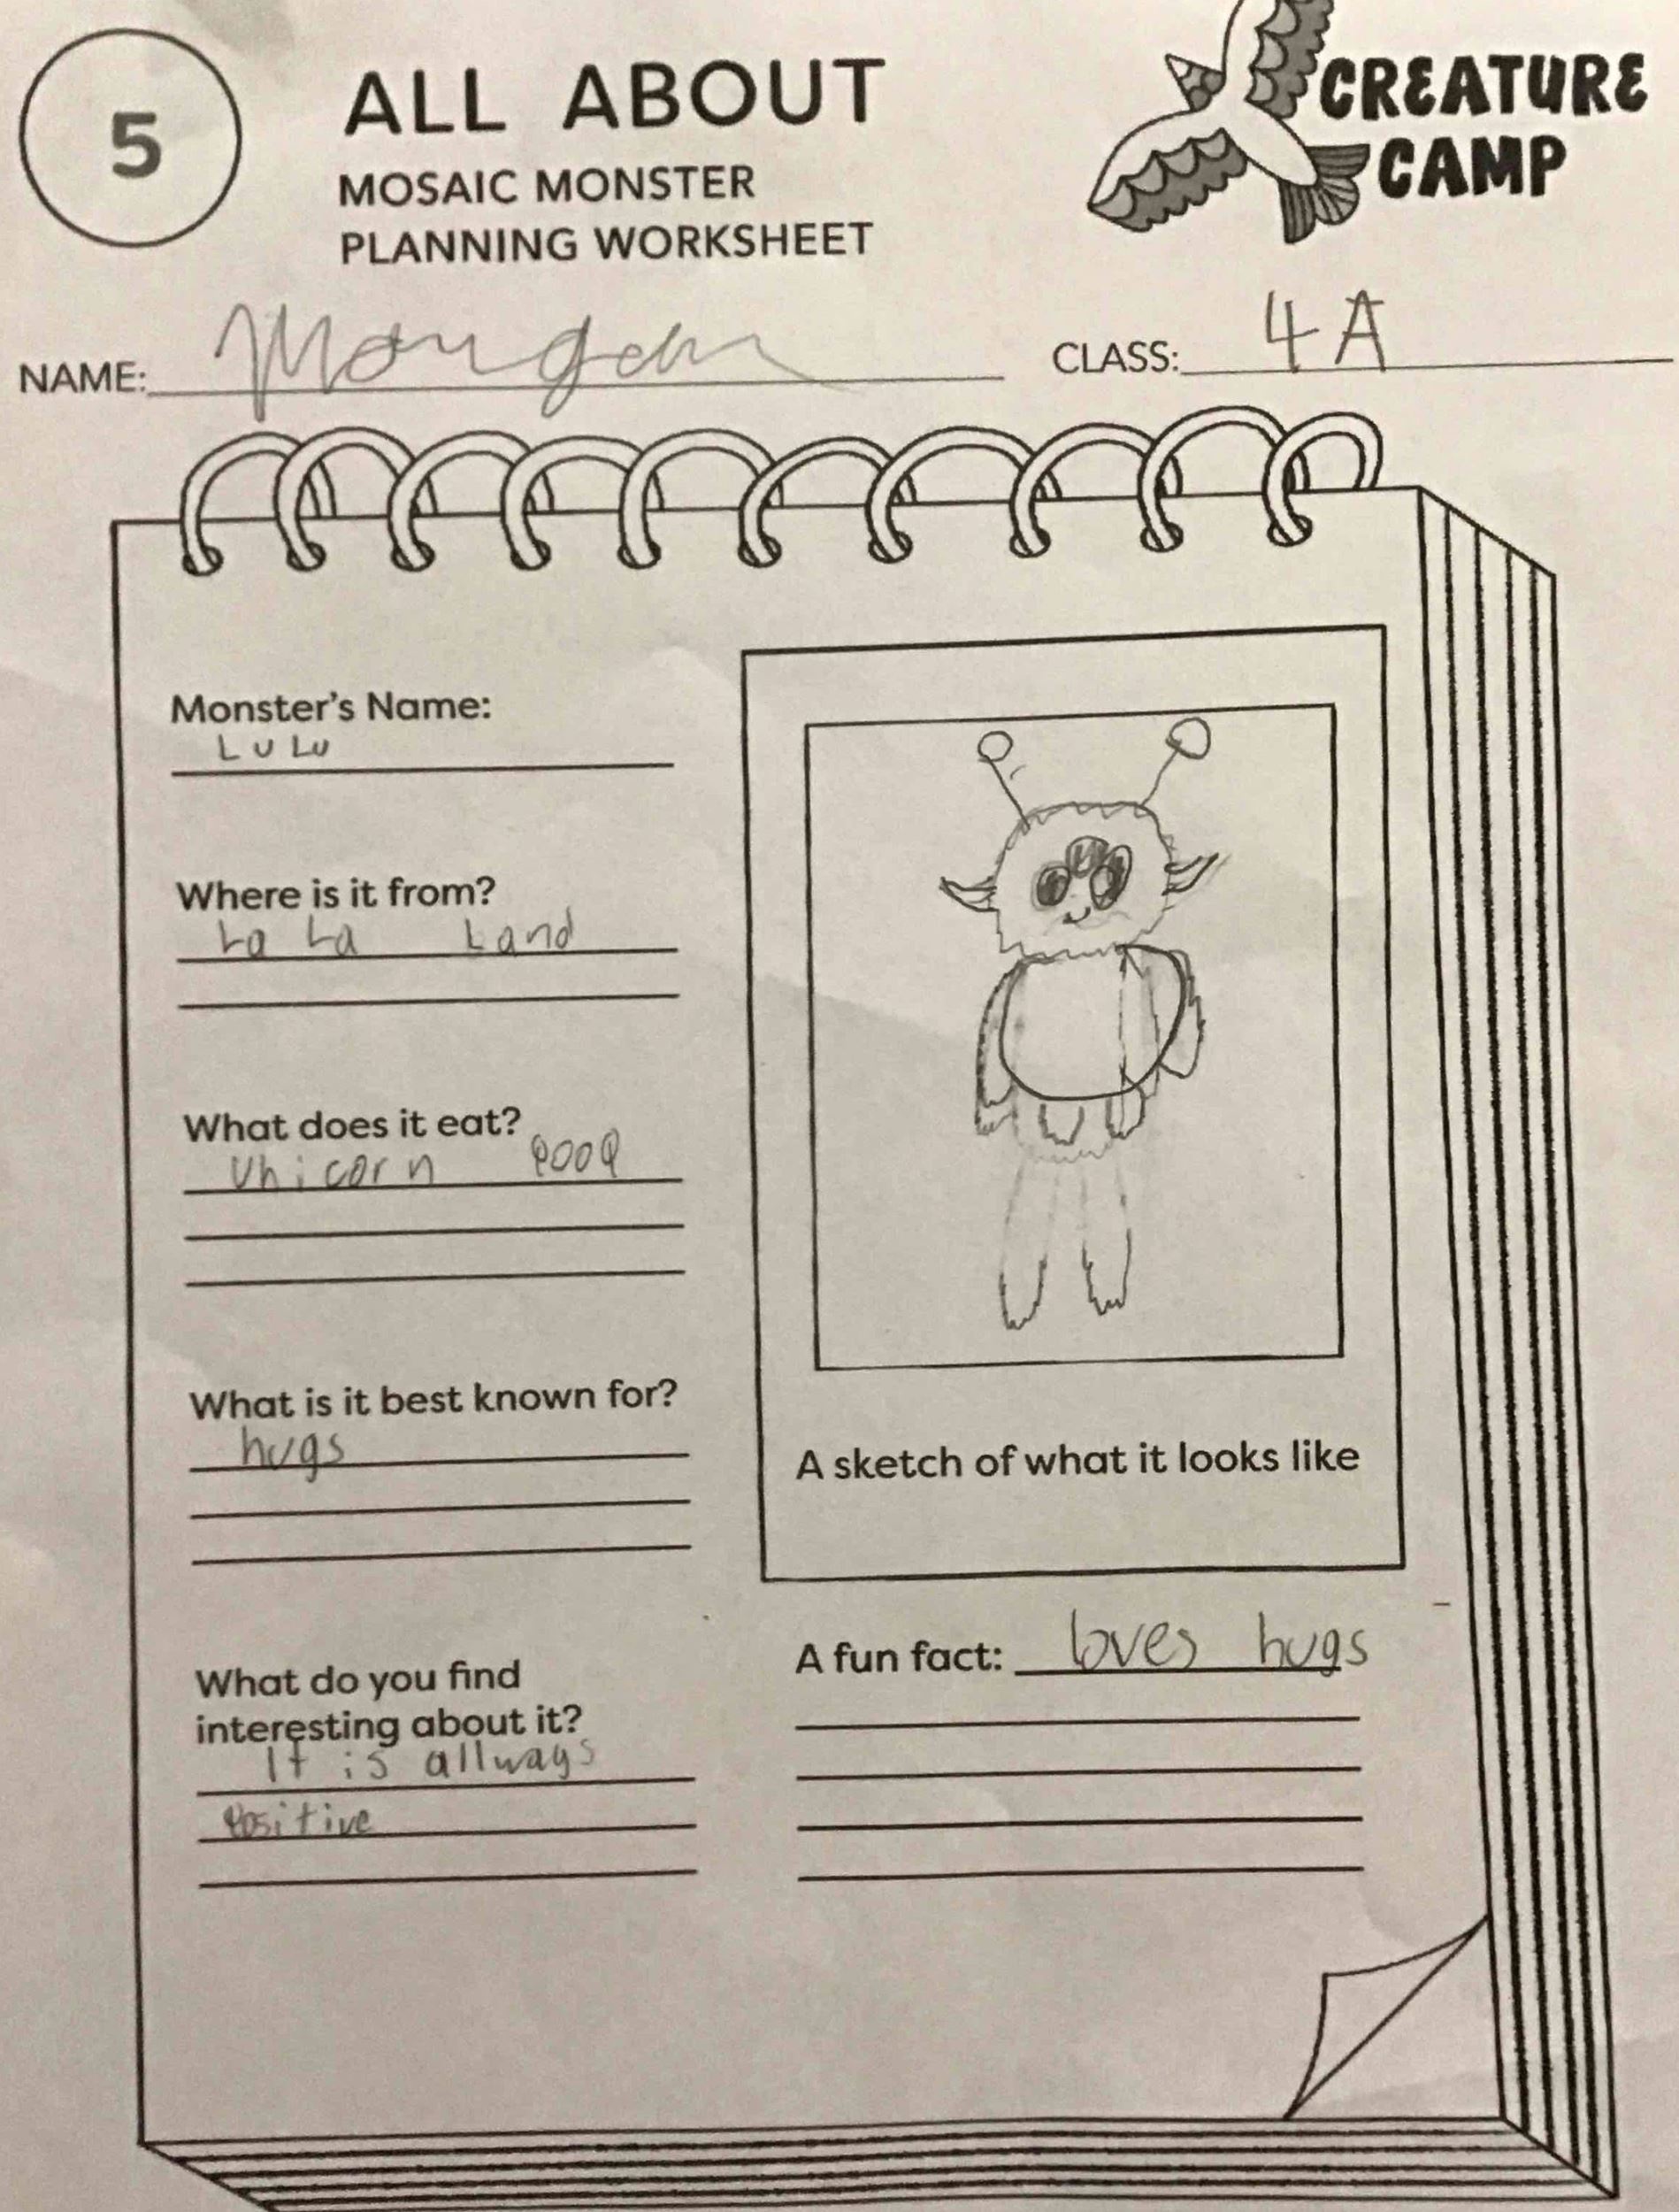 5
ALL ABOUT
MOSAIC MONSTER
PLANNING WORKSHEET
CREATURE
CAMP
NAME:
CLASS: 4A
Monster's Name:
LULU
Where is it from?
La La Land
What does it eat?
unicorn poop
What is it best known for?
hugs
A sketch of what it looks like
What do you find
interesting about it?
It is allways
positive
A fun fact: loves hugs